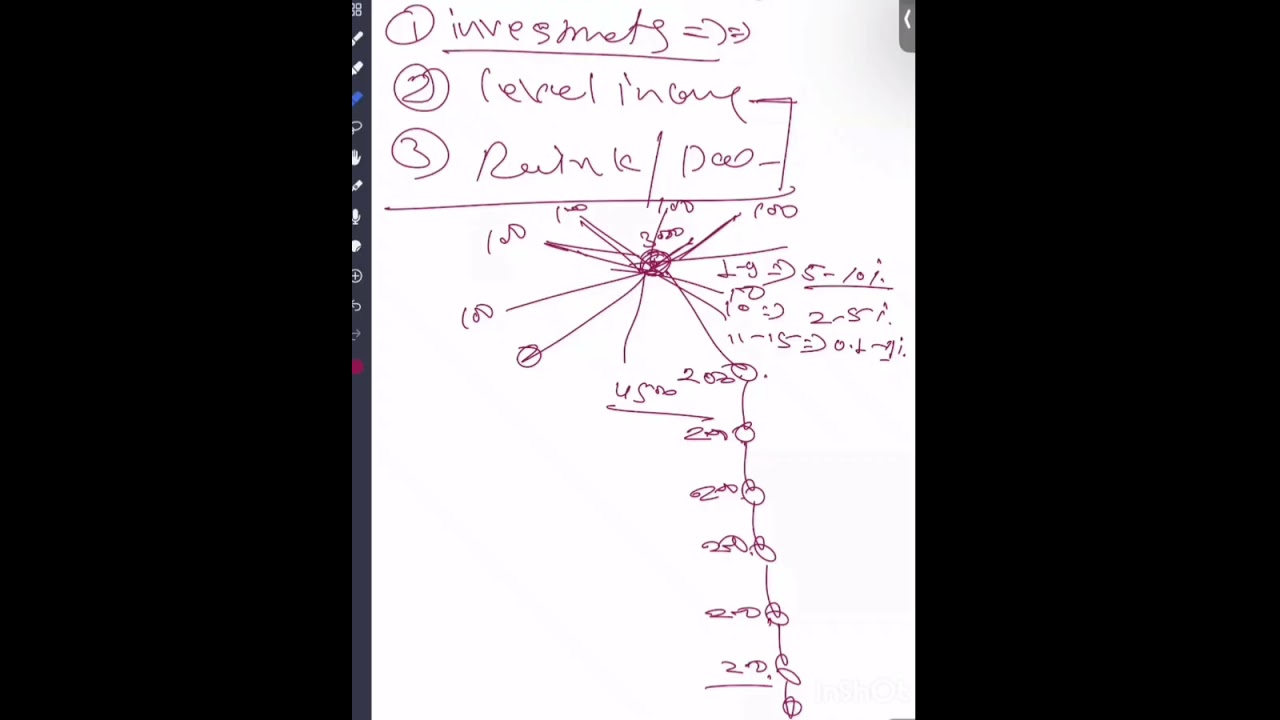 ① invesmets => =>
② level income
③ Rwink / Dao
100 100 100 100
3000
1-9 => 5-10%.
100
10 => 2-5%.
100
11-15 => 0.1-1%.
4500 200
200
200
200
200
200
InShOt